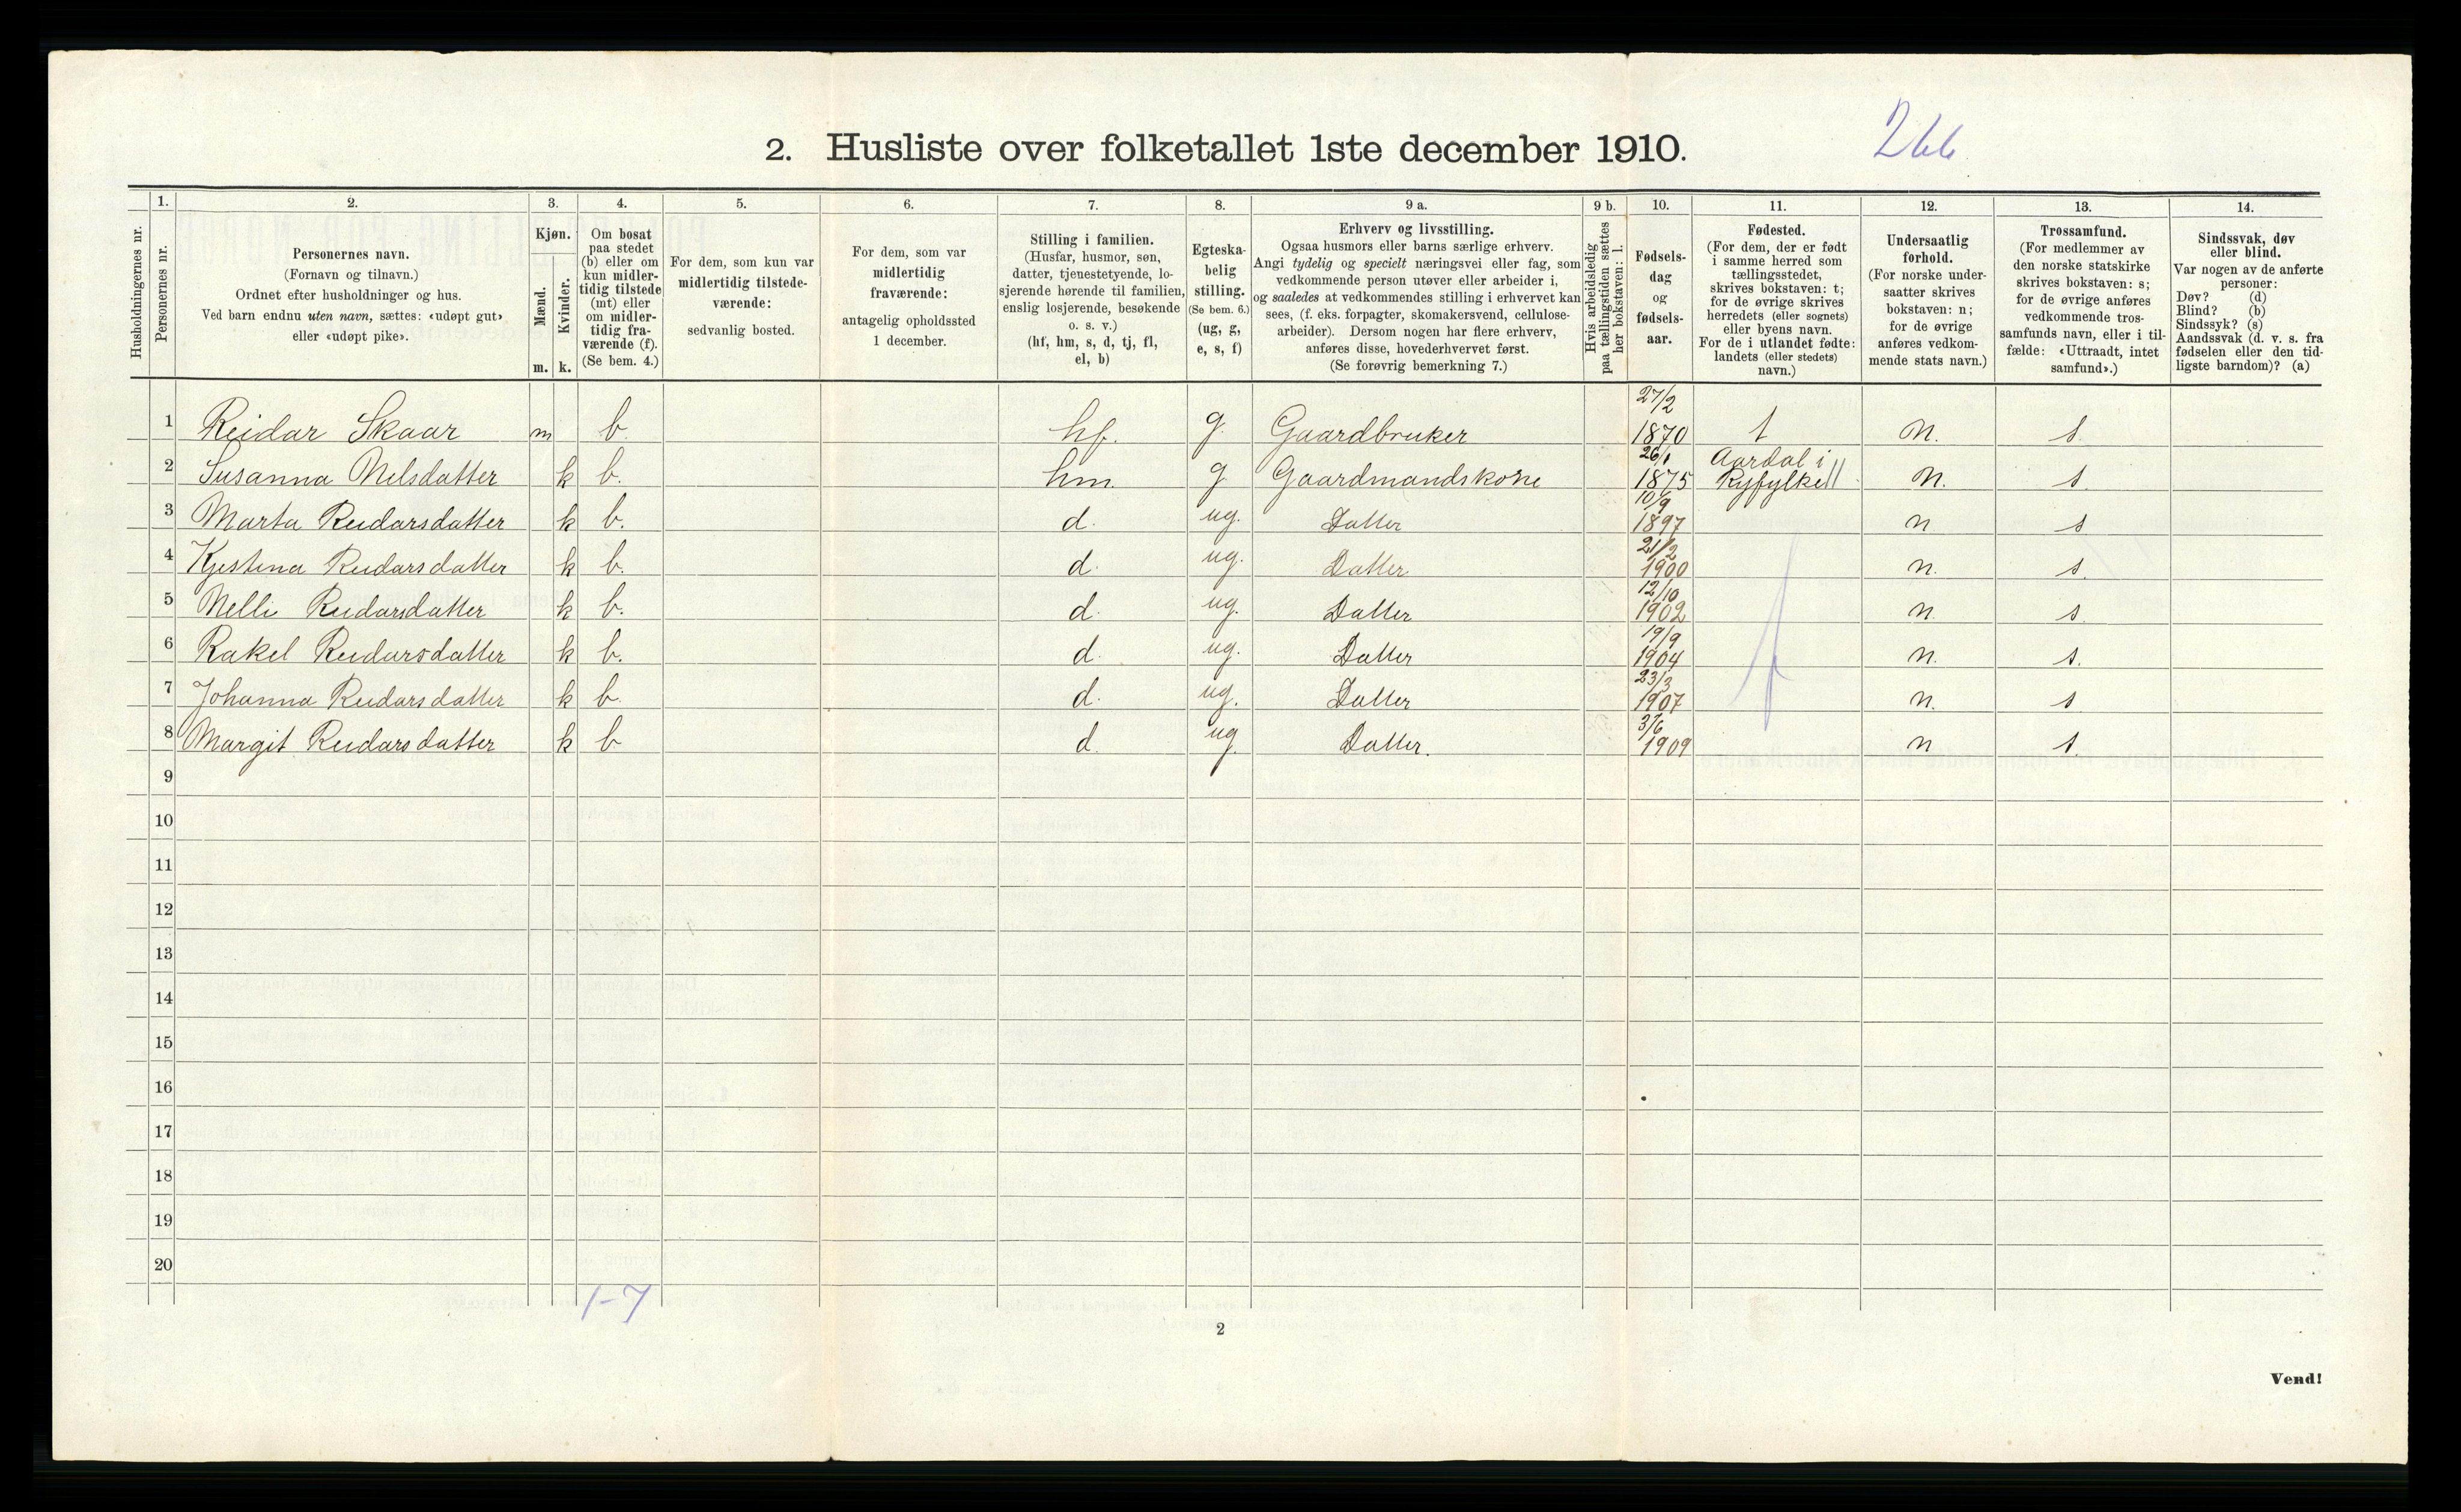 2. Husliste over folketallet 1ste december 1910.
266
Husholdningernes nr.
1.
Personernes nr.
2.
Personernes navn.
(Fornavn og tilnavn.)
Ordnet efter husholdninger og hus.
Ved barn endnu uten navn, sættes: «udøpt gut»
eller «udøpt pike».
3.
Kjøn.
Mænd.
Kvinder.
m. k.
4.
Om bosat
paa stedet
(b) eller om
kun midler-
tidig tilstede
(mt) eller
om midler-
tidig fra-
værende (f).
(Se bem. 4.)
5.
For dem, som kun var
midlertidig tilstede-
værende:
sedvanlig bosted.
6.
For dem, som var
midlertidig
fraværende:
antagelig opholdssted
1 december.
7.
Stilling i familien.
(Husfar, husmor, søn,
datter, tjenestetyende, lo-
sjerende hørende til familien,
enslig losjerende, besøkende
o. s. v.)
(hf, hm, s, d, tj, fl,
el, b)
8.
Egteska-
belig
stilling.
(Se bem. 6.)
(ug, g,
e, s, f)
9 a.
Erhverv og livsstilling.
Ogsaa husmors eller barns særlige erhverv.
Angi tydelig og specielt næringsvei eller fag, som
vedkommende person utøver eller arbeider i,
og saaledes at vedkommendes stilling i erhvervet kan
sees, (f. eks. forpagter, skomakersvend, cellulose-
arbeider). Dersom nogen har flere erhverv,
anføres disse, hovederhvervet først.
(Se forøvrig bemerkning 7.)
9 b.
Hvis arbeidsledig
paa tællingstiden sættes
her bokstaven: l.
10.
Fødsels-
dag
og
fødsels-
aar.
11.
Fødested.
(For dem, der er født
i samme herred som
tællingsstedet,
skrives bokstaven: t;
for de øvrige skrives
herredets (eller sognets)
eller byens navn.
For de i utlandet fødte:
landets (eller stedets)
navn.)
12.
Undersaatlig
forhold.
(For norske under-
saatter skrives
bokstaven: n;
for de øvrige
anføres vedkom-
mende stats navn.)
13.
Trossamfund.
(For medlemmer av
den norske statskirke
skrives bokstaven: s;
for de øvrige anføres
vedkommende tros-
samfunds navn, eller i til-
fælde: «Uttraadt, intet
samfund».)
14.
Sindssvak, døv
eller blind.
Var nogen av de anførte
personer:
Døv? (d)
Blind? (b)
Sindssyk? (s)
Aandssvak (d. v. s. fra
fødselen eller den tid-
ligste barndom)? (a)
1 Reidar Skaar m b. hf. g. Gaardbruker 27/2 1870 t n. s.
2 Susanna Nelsdatter k b. hm. g Gaardmandskone 26/1 1875 Aardal i Ryfylke n. s.
3 Marta Reidarsdatter k b. d. ug. Datter 10/9 1897 n s
4 Kjestina Reidarsdatter k b. d. ug. Datter 21/2 1900 n. s.
5 Nelli Reidarsdatter k b. d. ug. Datter 12/10 1902 n. s.
6 Rakel Reidarsdatter k b. d. ug. Datter 19/9 1904 n. s.
7 Johanna Reidarsdatter k b. d. ug. Datter 23/3 1907 n. s
8 Margit Reidarsdatter k b d. ug. Datter. 3/6 1909 n s.
9
10
11
12
13
14
15
16
17
18
19
20
1-7
2
Vend!